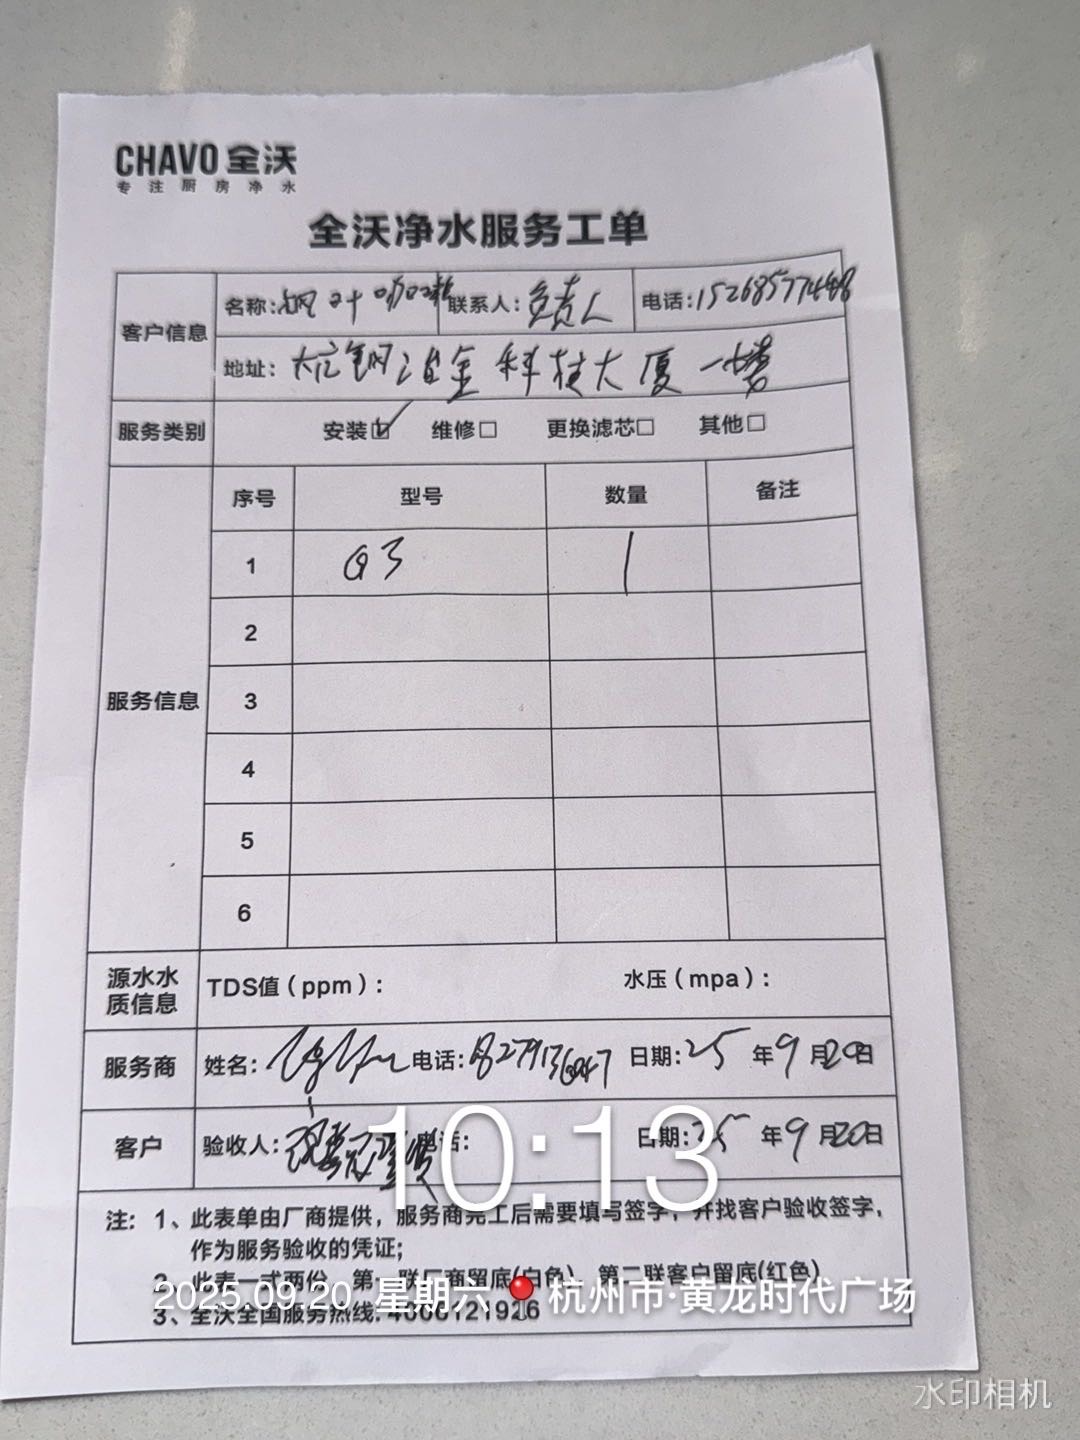 CHAVO 全沃
专注厨房净水
全沃净水服务工单
客户信息 名称: 联系人: 负责人 电话:
地址: 钢冶金科技大厦一楼
服务类别 安装☑ 维修□ 更换滤芯□ 其他□
服务信息 序号 型号 数量 备注
1 G3 1
2
3
4
5
6
源水水质信息 TDS值（ppm）: 水压（mpa）:
服务商 姓名: 电话: 日期: 25 年 9 月 20 日
客户 验收人: 电话: 日期: 25 年 9 月 20 日
10:13
注: 1、此表单由厂商提供，服务商完工后需要填写签字，并找客户验收签字，
作为服务验收的凭证;
2、此表一式两份，第一联厂商留底(白色)，第二联客户留底(红色)
2025.09.20 星期六 杭州市·黄龙时代广场
3、全沃全国服务热线: 4000121926
水印相机